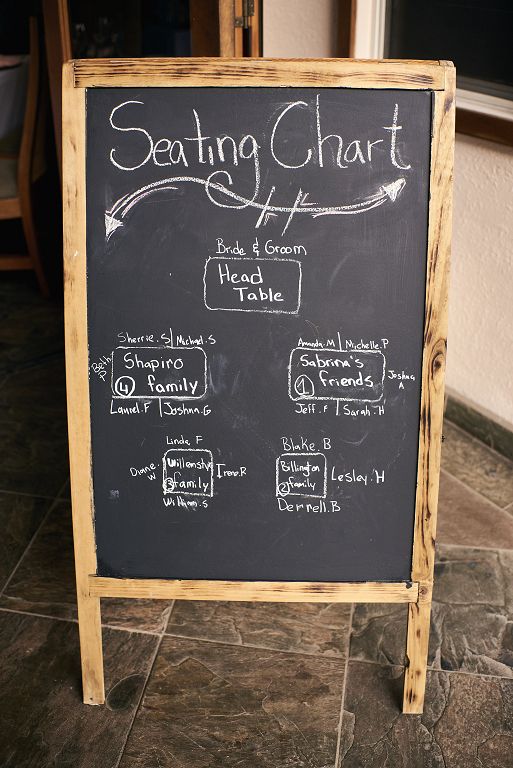 Seating Chart
Bride & Groom
Head
Table
Sherrie.S | Michael.S
Beth
P
Shapiro
4 family
Laurel.F | Joshua.G
Amanda.M | Michelle.P
Sabrina's
1 friends
Joshua
A
Jeff.F | Sarah.H
Linda, F
Diane
W
3 family
Irene.R
William.S
Blake.B
Billington
2 family
Lesley.H
Derrell.B